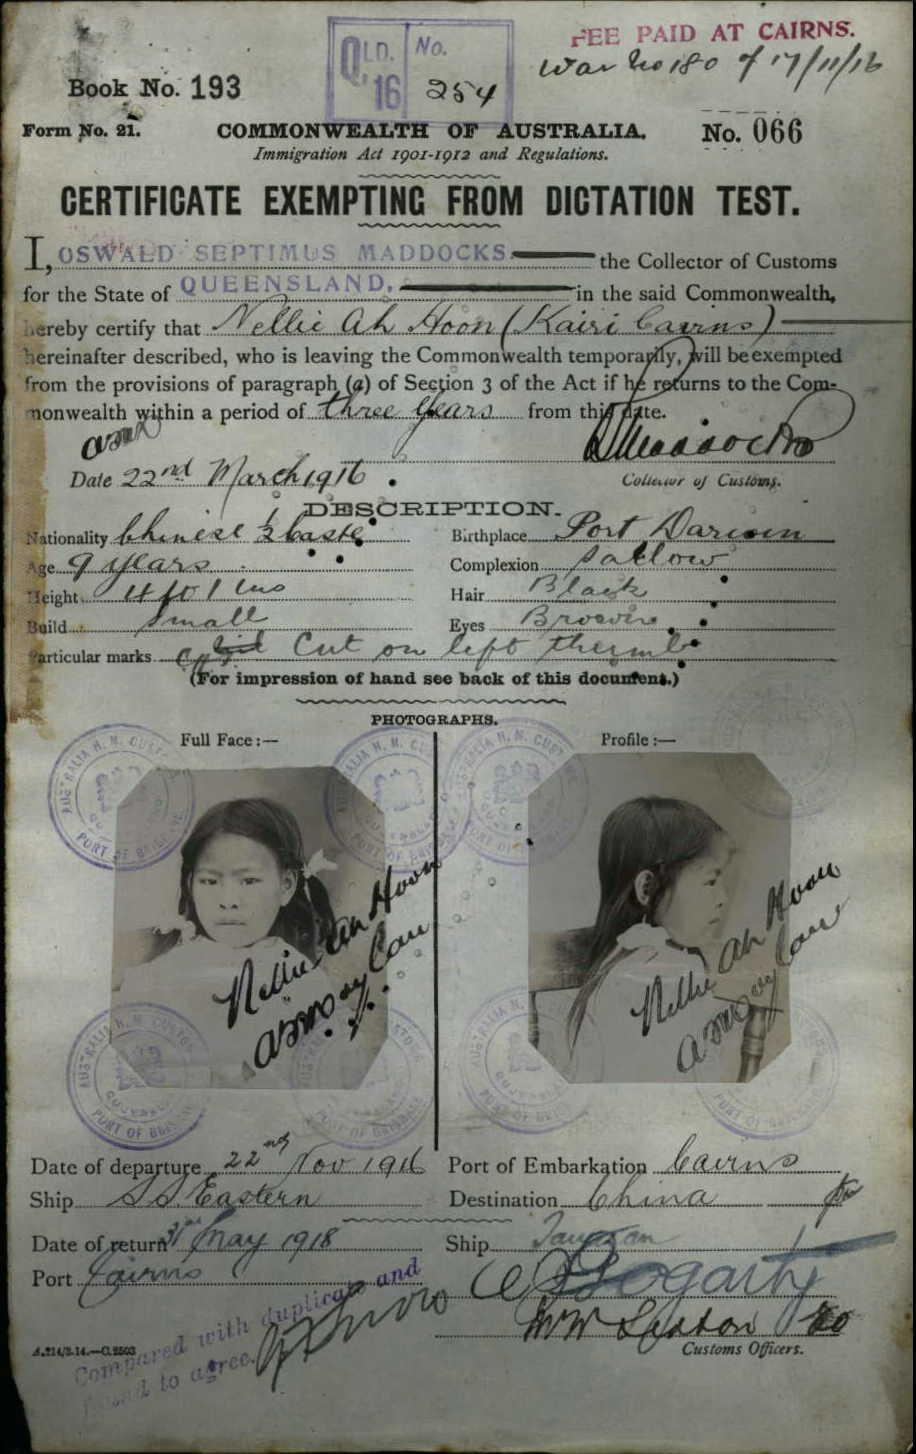 FEE PAID AT CAIRNS.
War No 180 of 17/11/16
QLD. No.
16 254
Book No. 193
Form No. 21. COMMONWEALTH OF AUSTRALIA. No. 066
Immigration Act 1901-1912 and Regulations.
CERTIFICATE EXEMPTING FROM DICTATION TEST.
I, OSWALD SEPTIMUS MADDOCKS the Collector of Customs
for the State of QUEENSLAND, in the said Commonwealth,
hereby certify that Nellie Ah Hoon (Kairi Cairns)
hereinafter described, who is leaving the Commonwealth temporarily, will be exempted
from the provisions of paragraph (a) of Section 3 of the Act if he returns to the Com-
monwealth within a period of three years from this date.
Date 22nd March 1916
Collector of Customs.
DESCRIPTION.
Nationality Chinese ½ Caste Birthplace Port Darwin
Age 9 years Complexion Sallow
Height 4 ft 1 ins Hair Black
Build Small Eyes Brown
Particular marks Cut on left thumb
(For impression of hand see back of this document.)
PHOTOGRAPHS.
Full Face:— Profile:—
AUSTRALIA H. M. CUSTOMS
PORT OF BRISBANE
Nellie Ah Hoon
Nellie Ah Hoon
Date of departure 22nd Nov 1916 Port of Embarkation Cairns
Ship SS. Eastern Destination China
Date of return 31st May 1918 Ship Taiyuan
Port Cairns
Compared with duplicate and
found to agree.
Customs Officers.
A.214/3.14.—C.2503